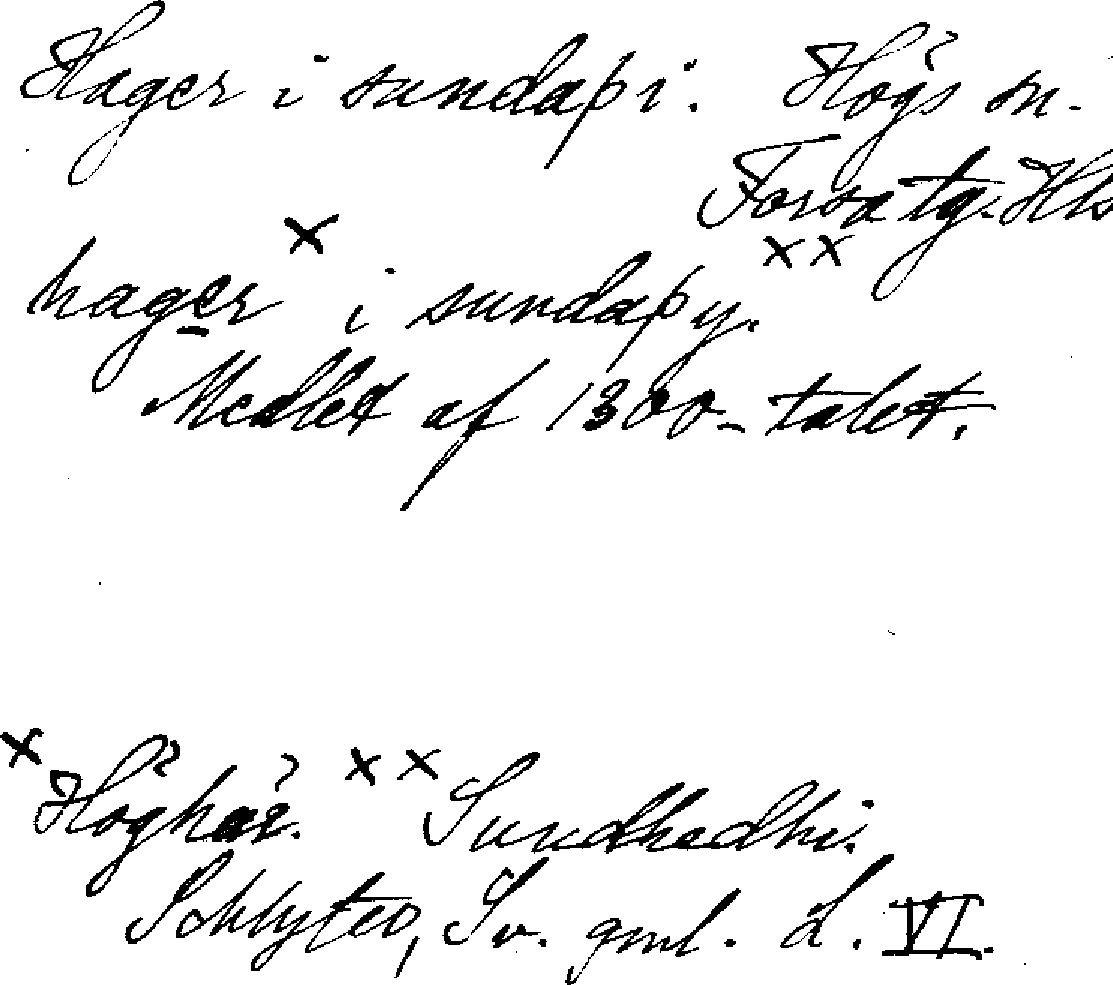 Hager i sundaþi. Högs sn.
Forsa tg. Hls
hager × i sundaþy. ××
Medlet af 1300-talet.
× Höghär. ×× Sundhedhi.
Schlyter, Sv. gml. L. VI.